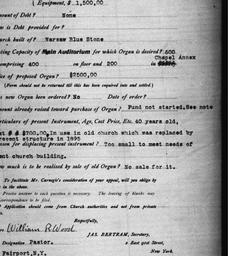 (Equipment, $ 1,500.00
mount of Debt? None
is Debt provided for?
urch built of? Warsaw Blue Stone
ating Capacity of Main Auditorium for which Organ is desired? 600
Chapel Annex
comprising 400 on floor and 200 in
ice of proposed Organ? $2500.00
(Form should not be returned till this has been enquired into and settled.)
s new Organ been ordered? No Date of order?
mount already raised toward purchase of Organ? Fund not started. See note
rticulars of present Instrument, Age, Cost Price, Etc. 40 years old,
st $700.00. In use in old church which was replaced by
resent structure in 1895
eason for displacing present instrument? Too small to meet needs of
ent church building.
ow much is to be realized by sale of old Organ? No sale for it.
To facilitate Mr. Carnegie's consideration of your appeal, will you oblige by
in the above.
Precise answer to each question is necessary. The leaving of blanks may
correspondence to be filed.
Application should come from Church authorities and not from private
Respectfully,
JAS. BERTRAM, Secretary,
William R. Wood
Designation Pastor. 2 East 91st Street,
Fairport, N.Y. New York.